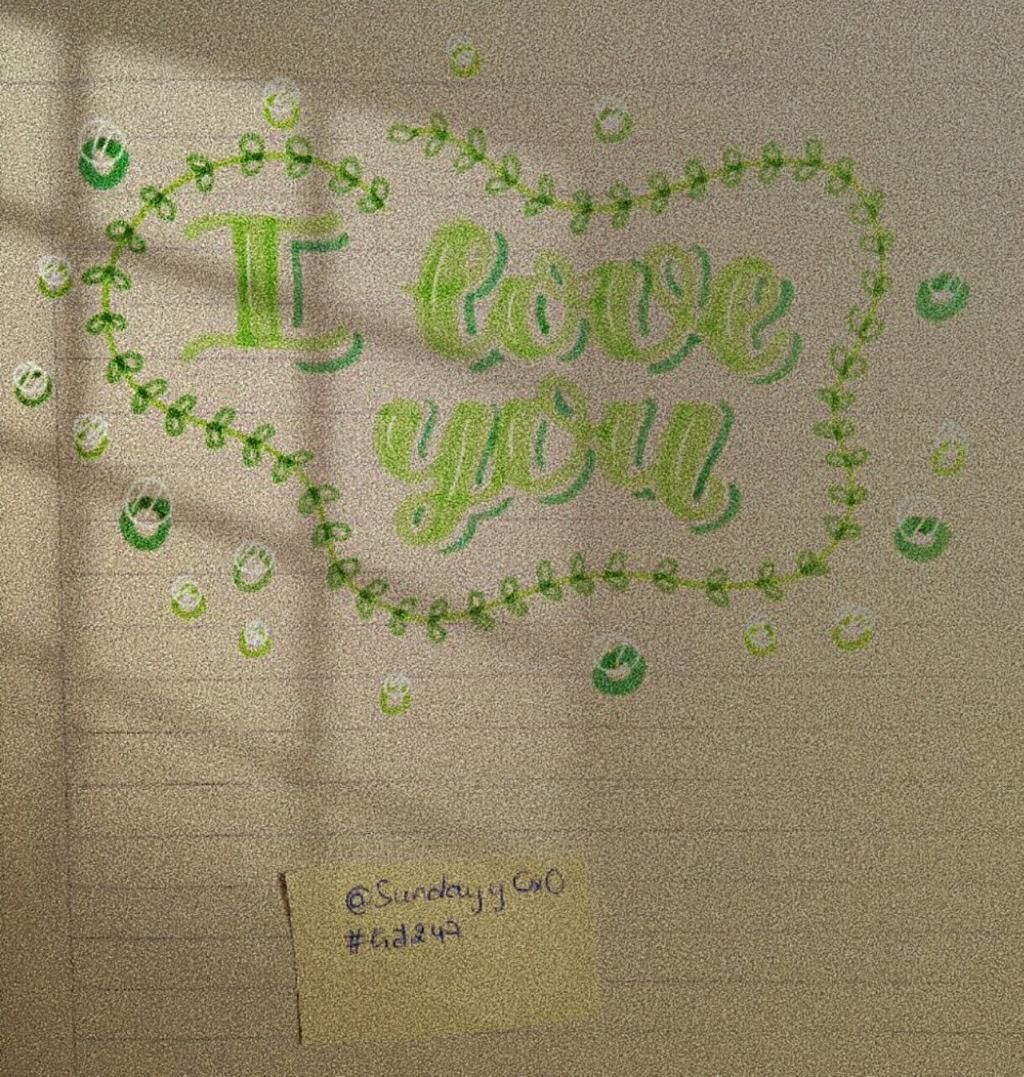 I love
you
@Sundayy0x0
#Gd247